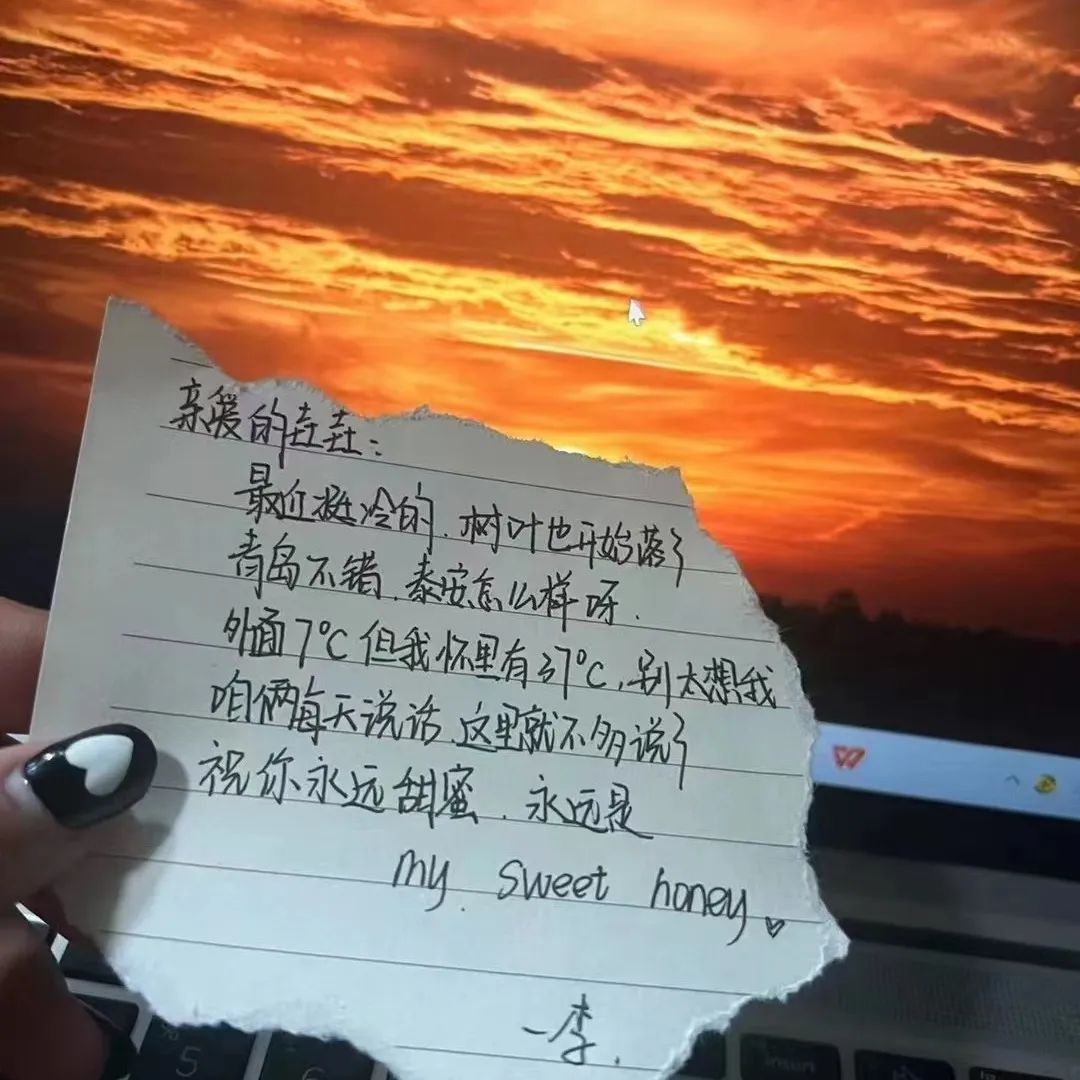 亲爱的垚垚:
最近挺冷的.树叶也开始落了
青岛不错.泰安怎么样呀.
外面7℃但我怀里有37℃,别太想我
咱俩每天说话 这里就不多说了
祝你永远甜蜜.永远是
my. sweet honey.♡
一李.
5
6
insert